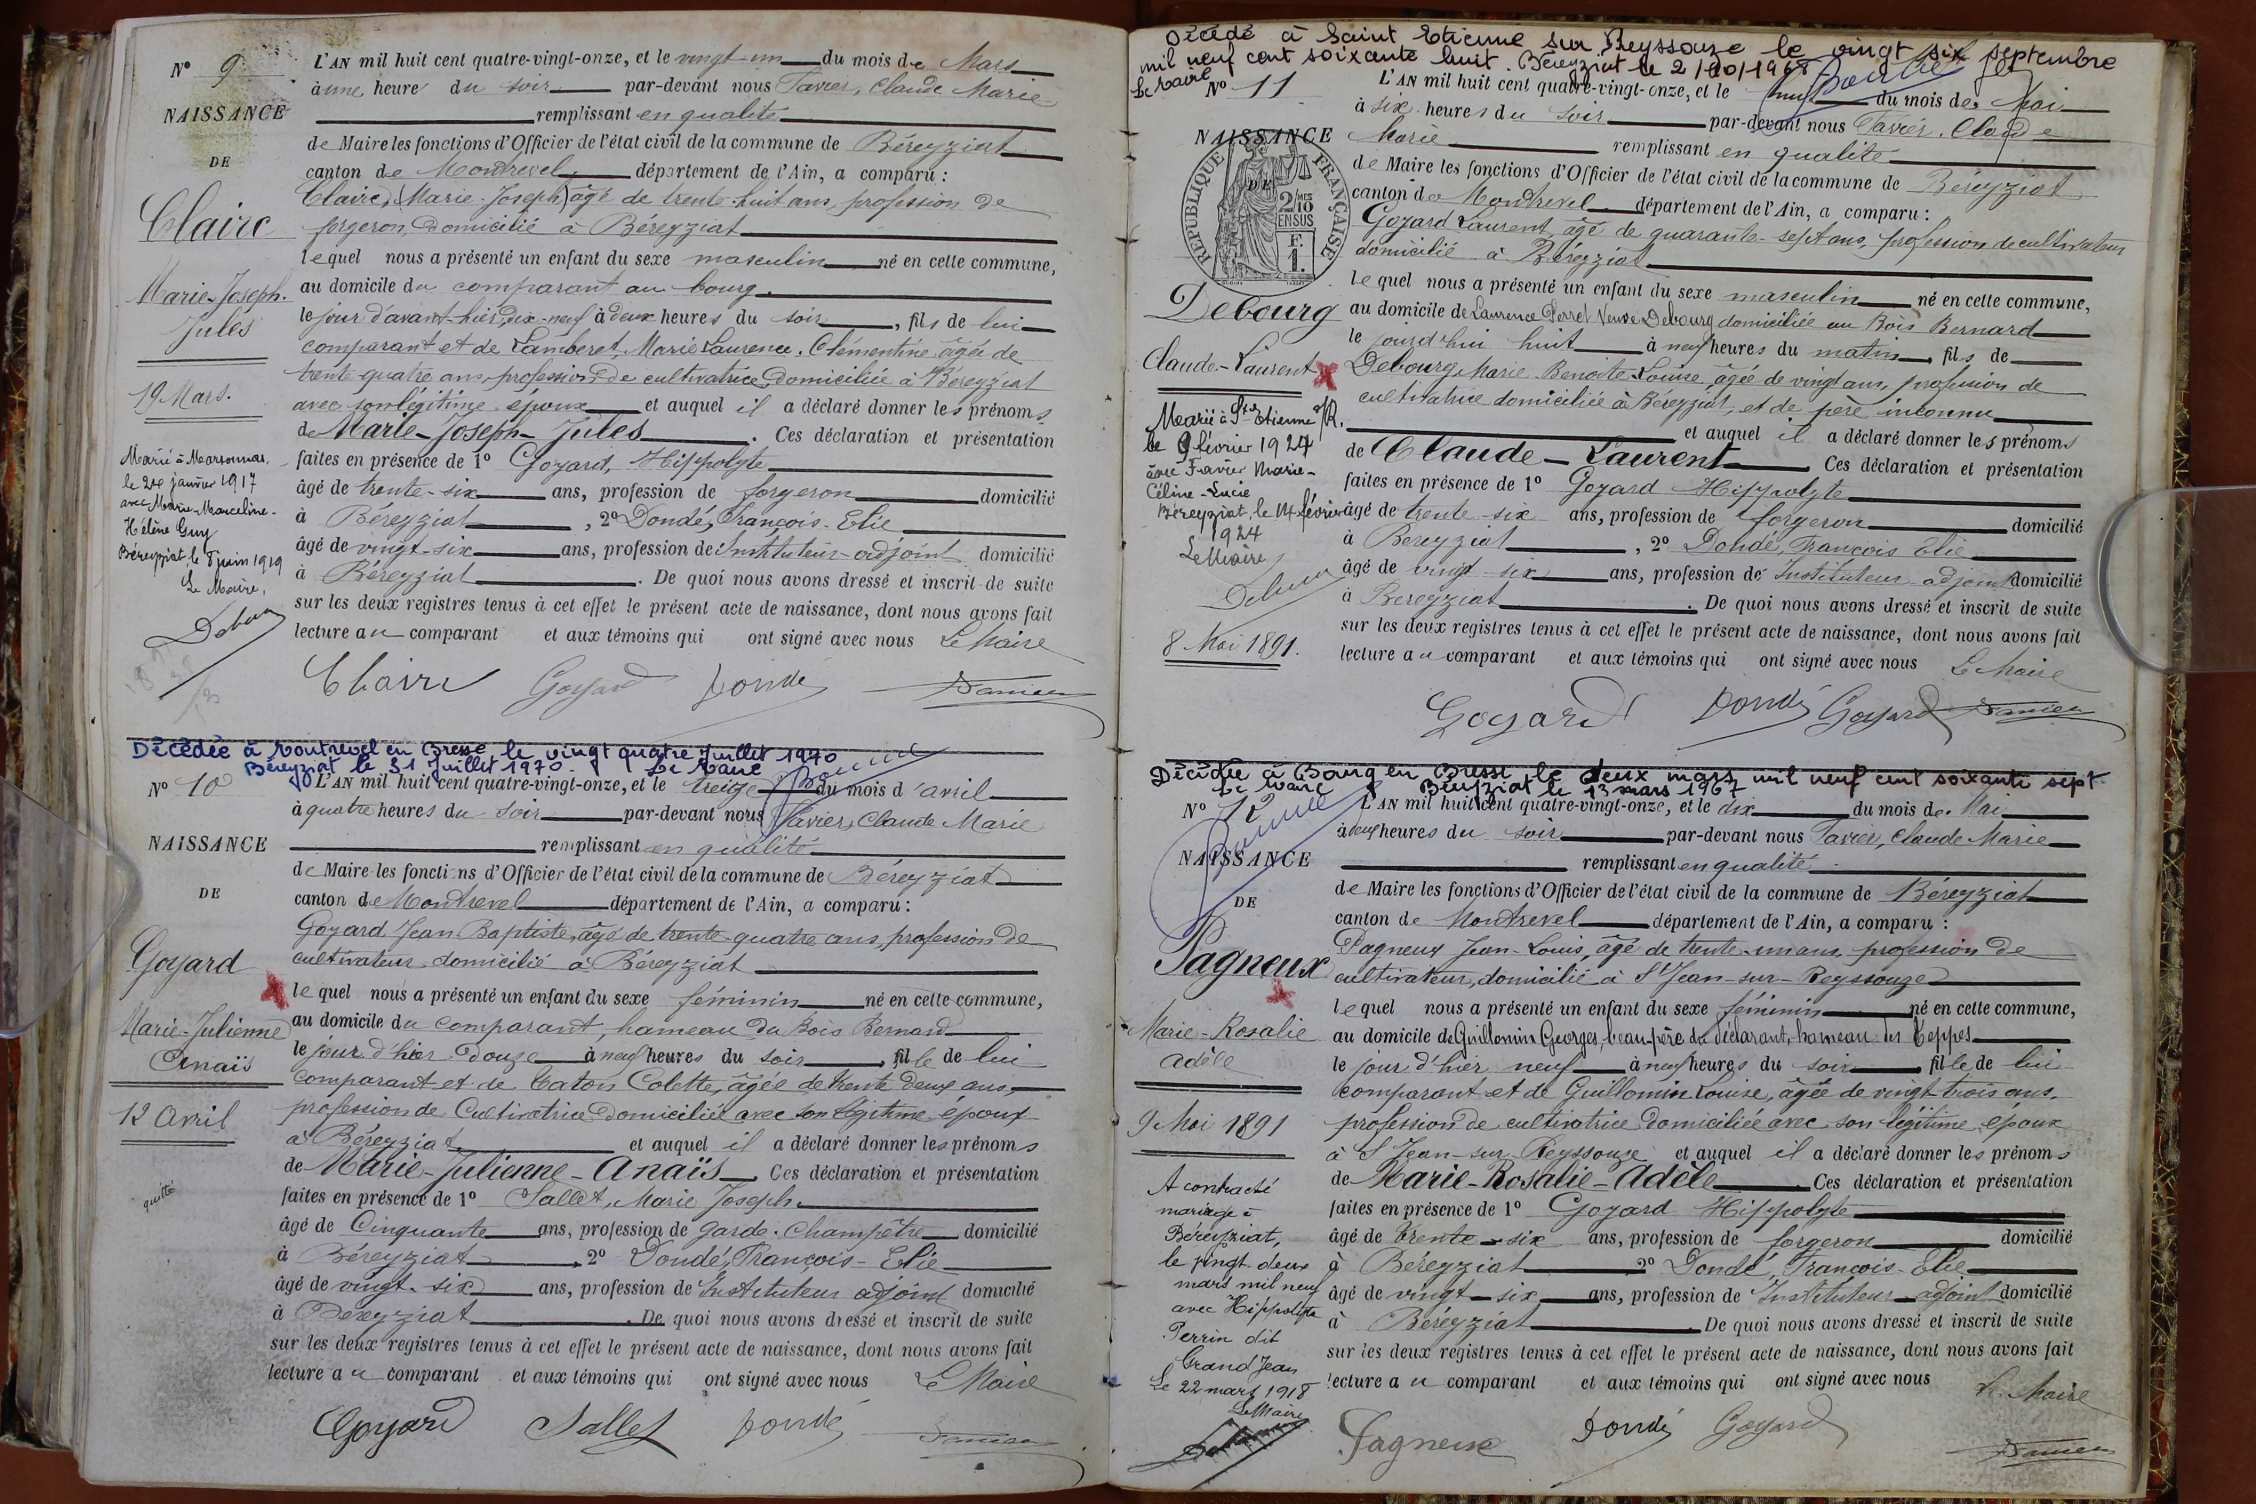 N° 9
NAISSANCE
DE
Claire
Marie-Joseph-
Jules
19 Mars.
Marié à Marsonnas,
le 24 janvier 1917
avec Marie-Marceline-
Hélène Guy
Béreyziat, le 8 juin 1919
Le Maire,
L'AN mil huit cent quatre-vingt-onze, et le vingt-un du mois de Mars
à une heure du soir par-devant nous Favier, Claude Marie
remplissant en qualité
de Maire les fonctions d'Officier de l'état civil de la commune de Béreyziat
canton de Montrevel département de l'Ain, a comparu :
Claire, (Marie-Joseph) âgé de trente-huit ans, profession de
forgeron, domicilié à Béreyziat
lequel nous a présenté un enfant du sexe masculin né en cette commune,
au domicile du comparant au bourg
le jour d'avant-hier, dix-neuf à deux heures du soir, fils de lui
comparant et de Lamberet, Marie Laurence, Clémentine, âgée de
trente-quatre ans, profession de cultivatrice, domiciliée à Béreyziat
avec son légitime époux et auquel il a déclaré donner les prénoms
de Marie-Joseph-Jules. Ces déclaration et présentation
faites en présence de 1° Goyard, Hippolyte
âgé de trente-six ans, profession de forgeron domicilié
à Béreyziat, 2° Dondé, François-Elie
âgé de vingt-six ans, profession de Instituteur-adjoint domicilié
à Béreyziat. De quoi nous avons dressé et inscrit de suite
sur les deux registres tenus à cet effet le présent acte de naissance, dont nous avons fait
lecture au comparant et aux témoins qui ont signé avec nous Le Maire
Claire Goyard Dondé Favier
Décédée à Montrevel en Bresse le vingt quatre Juillet 1970
Béreyziat le 31 Juillet 1970. Le Maire
N° 10
NAISSANCE
DE
Goyard
Marie-Julienne
Anaïs
12 Avril
L'AN mil huit cent quatre-vingt-onze, et le treize du mois d'avril
à quatre heures du soir par-devant nous Favier, Claude Marie
remplissant en qualité
de Maire les fonctions d'Officier de l'état civil de la commune de Béreyziat
canton de Montrevel département de l'Ain, a comparu :
Goyard Jean Baptiste, âgé de trente-quatre ans, profession de
cultivateur domicilié à Béreyziat
lequel nous a présenté un enfant du sexe féminin né en cette commune,
au domicile du comparant, hameau du Bois Bernard
le jour d'hier douze à neuf heures du soir, fille de lui
comparant et de Caton Colette, âgée de trente deux ans,
profession de Cultivatrice domiciliée avec son légitime époux
à Béreyziat et auquel il a déclaré donner les prénoms
de Marie-Julienne-Anaïs. Ces déclaration et présentation
faites en présence de 1° Sallet, Marie Joseph
âgé de Cinquante ans, profession de garde-champêtre domicilié
à Béreyziat, 2° Dondé, François-Elie
âgé de vingt-six ans, profession de Instituteur adjoint domicilié
à Béreyziat. De quoi nous avons dressé et inscrit de suite
sur les deux registres tenus à cet effet le présent acte de naissance, dont nous avons fait
lecture au comparant et aux témoins qui ont signé avec nous Le Maire
Goyard Sallet Dondé Favier
Décédé à Saint Etienne sur Reyssouze le vingt six septembre
mil neuf cent soixante huit. Béreyziat le 2/10/1968
Le Maire
N° 11
NAISSANCE
DE
REPUBLIQUE FRANÇAISE
2/10 EN SUS
Debourg
Claude-Laurent
Marié à St Etienne s/R.
le 9 février 1924
avec Favier Marie-
Céline-Lucie
Béreyziat, le 14 février
1924
Le Maire,
8 Mai 1891.
L'AN mil huit cent quatre-vingt-onze, et le huit du mois de Mai
à six heures du soir par-devant nous Favier, Claude
Marie remplissant en qualité
de Maire les fonctions d'Officier de l'état civil de la commune de Béreyziat
canton de Montrevel département de l'Ain, a comparu :
Goyard Laurent, âgé de quarante-sept ans, profession de cultivateur
domicilié à Béreyziat
lequel nous a présenté un enfant du sexe masculin né en cette commune,
au domicile de Laurence Perret Veuve Debourg domiciliée au Bois Bernard
le jourd'hui huit à neuf heures du matin, fils de
Debourg Marie Benoite Louise, âgée de vingt ans, profession de
cultivatrice domiciliée à Béreyziat, et de père inconnu
et auquel il a déclaré donner les prénoms
de Claude-Laurent. Ces déclaration et présentation
faites en présence de 1° Goyard Hippolyte
âgé de trente-six ans, profession de forgeron domicilié
à Béreyziat, 2° Dondé, François Elie
âgé de vingt-six ans, profession de Instituteur adjoint domicilié
à Béreyziat. De quoi nous avons dressé et inscrit de suite
sur les deux registres tenus à cet effet le présent acte de naissance, dont nous avons fait
lecture au comparant et aux témoins qui ont signé avec nous Le Maire
Goyard Dondé Goyard Favier
Décédée à Bourg en Bresse le deux mars mil neuf cent soixante sept.
Le Maire Béreyziat le 13 mars 1967
N° 12
NAISSANCE
DE
Pagneux
Marie-Rosalie
Adèle
9 Mai 1891
A contracté
mariage à
Béreyziat,
le vingt-deux
mars mil neuf
avec Hippolyte
Perrin dit
Grand Jean
Le 22 mars 1918
Le Maire
L'AN mil huit cent quatre-vingt-onze, et le dix du mois de Mai
à neuf heures du soir par-devant nous Favier, Claude Marie
remplissant en qualité
de Maire les fonctions d'Officier de l'état civil de la commune de Béreyziat
canton de Montrevel département de l'Ain, a comparu :
Pagneux Jean-Louis, âgé de trente-un ans, profession de
cultivateur, domicilié à St Jean-sur-Reyssouze
lequel nous a présenté un enfant du sexe féminin né en cette commune,
au domicile de Guillomin Georges, beau-père du déclarant, hameau des Teppes
le jour d'hier neuf à neuf heures du soir fille de lui
comparant et de Guillomin Louise, âgée de vingt-trois ans,
profession de cultivatrice domiciliée avec son légitime époux
à St Jean-sur-Reyssouze et auquel il a déclaré donner les prénoms
de Marie-Rosalie-Adèle. Ces déclaration et présentation
faites en présence de 1° Goyard Hippolyte
âgé de trente-six ans, profession de forgeron domicilié
à Béreyziat 2° Dondé, François-Elie
âgé de vingt-six ans, profession de Instituteur-adjoint domicilié
à Béreyziat. De quoi nous avons dressé et inscrit de suite
sur les deux registres tenus à cet effet le présent acte de naissance, dont nous avons fait
lecture au comparant et aux témoins qui ont signé avec nous Le Maire
Pagneux Dondé Goyard Favier